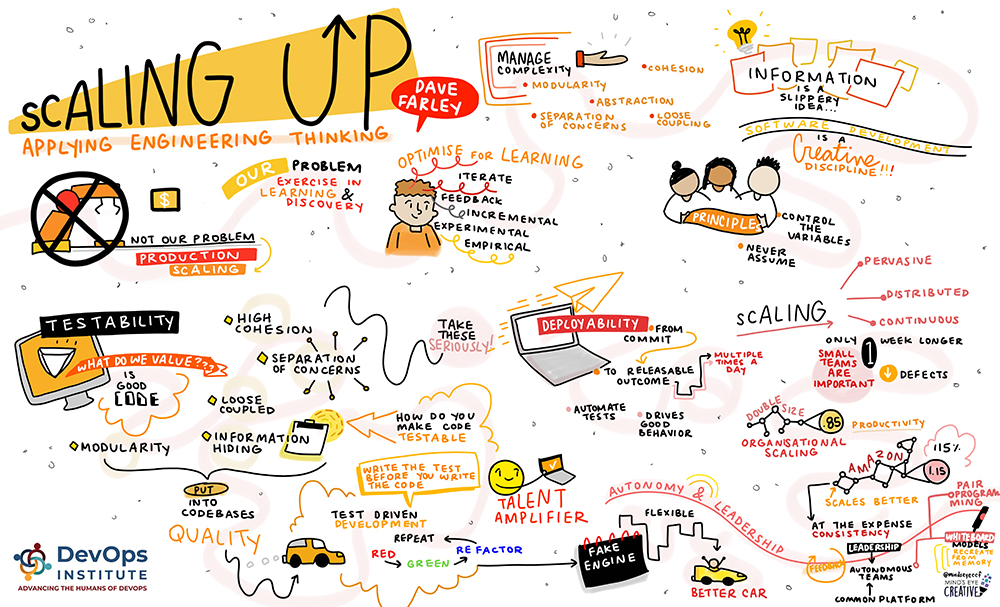 SCALING UP
APPLYING ENGINEERING THINKING
DAVE
FARLEY
MANAGE
COMPLEXITY
COHESION
MODULARITY
ABSTRACTION
SEPARATION
OF CONCERNS
LOOSE
COUPLING
INFORMATION
IS A
SLIPPERY
IDEA...
SOFTWARE DEVELOPMENT
IS A
Creative
DISCIPLINE!!!
$
NOT OUR PROBLEM
PRODUCTION
SCALING
OUR PROBLEM
EXERCISE IN
LEARNING &
DISCOVERY
OPTIMISE FOR LEARNING
ITERATE
FEEDBACK
INCREMENTAL
EXPERIMENTAL
EMPIRICAL
PRINCIPLE
CONTROL
THE
VARIABLES
NEVER
ASSUME
TESTABILITY
WHAT DO WE VALUE???
IS
GOOD
CODE
HIGH
COHESION
SEPARATION
OF CONCERNS
LOOSE
COUPLED
MODULARITY
INFORMATION
HIDING
PUT
INTO
CODEBASES
QUALITY
TAKE
THESE
SERIOUSLY!
HOW DO YOU
MAKE CODE
TESTABLE
WRITE THE TEST
BEFORE YOU WRITE
THE CODE
TEST DRIVEN
DEVELOPMENT
REPEAT
RED
GREEN
REFACTOR
TALENT
AMPLIFIER
DEPLOYABILITY
FROM
COMMIT
TO RELEASABLE
OUTCOME
MULTIPLE
TIMES A
DAY
AUTOMATE
TESTS
DRIVES
GOOD
BEHAVIOR
SCALING
PERVASIVE
DISTRIBUTED
CONTINUOUS
ONLY 1 WEEK LONGER
SMALL
TEAMS
ARE
IMPORTANT
DEFECTS
DOUBLE SIZE
.85
PRODUCTIVITY
ORGANISATIONAL
SCALING
AMAZON
1.15
115%
SCALES BETTER
AT THE EXPENSE
CONSISTENCY
LEADERSHIP
AUTONOMOUS
TEAMS
COMMON PLATFORM
PAIR
PROGRAM
MING
WHITEBOARD
MODELS
RECREATE
FROM
MEMORY
AUTONOMY & LEADERSHIP
FLEXIBLE
FAKE
ENGINE
BETTER CAR
FEEDBACK
DevOps
INSTITUTE
ADVANCING THE HUMANS OF DEVOPS
@mindseyeccf
MIND'S EYE
CREATIVE